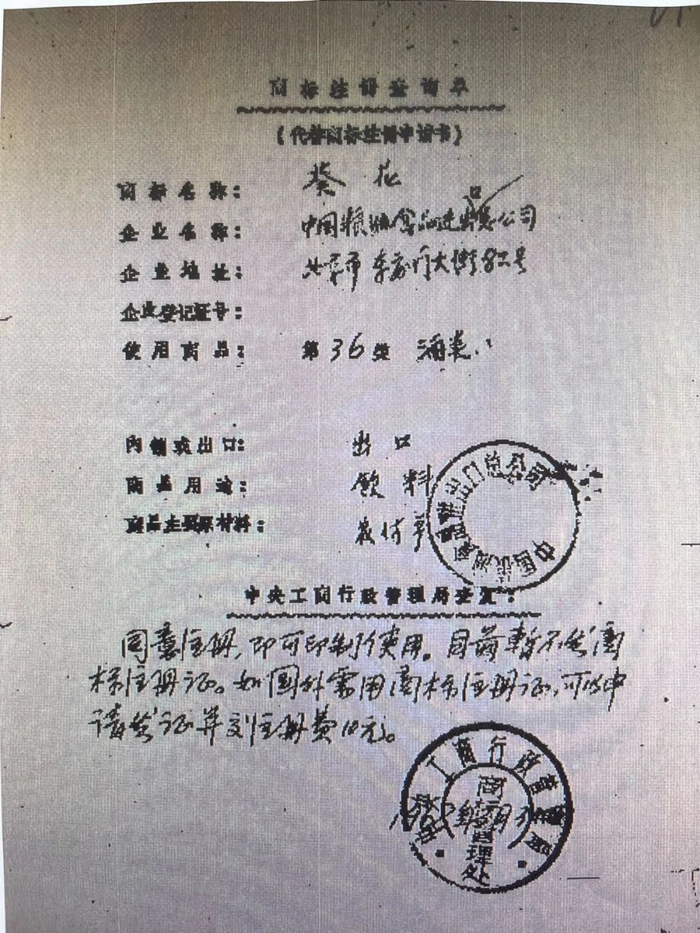 商标注册查询单
(代替商标注册申请书)
商标名称: 葵花
企业名称: 中国粮油食品进出口总公司
企业地址: 北京市东安门大街82号
企业登记证号:
使用商品: 第36类 酒类
内销或出口: 出口
商品用途: 饮料
商品主要原材料:
中央工商行政管理局签复:
同意注册,即可印制使用。目前暂不发商
标注册证。如国外需用商标注册证,可以申
请发证并交注册费10元。
中国粮油食品进出口总公司
中央工商行政管理局
商标管理处